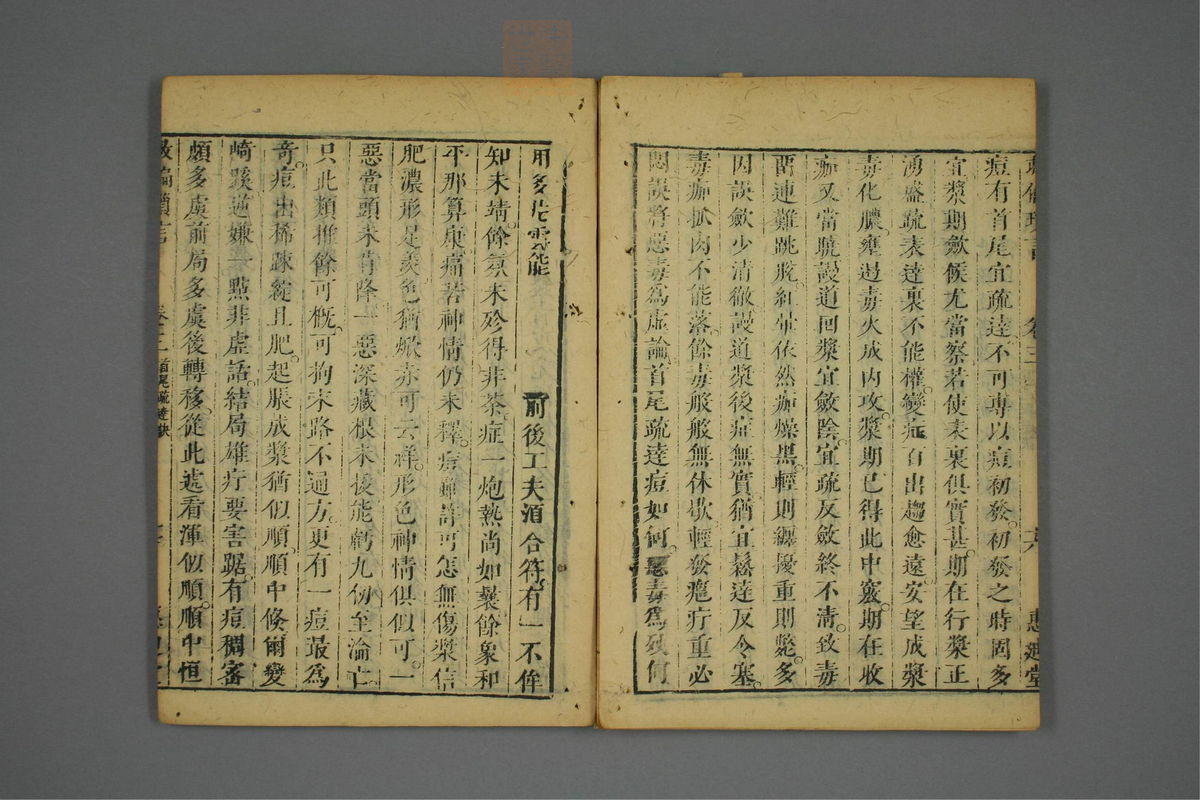 痘有首尾宜疏達不可專以痘初發初發之時固多
宜漿期斂候尤當察若使表裏俱實甚期在行漿正
湧盛疏表達裏不能權變症百出趨愈遠安望成漿
毒化膿壅遏毒火成內攻漿期已得此中竅期在收
痂又當騐謾道回漿宜斂陰宜疏反斂終不清致毒
留連難跳脫紅暈依然痂燥黑輕則纏擾重則斃多
因誤斂少清徹謾道漿後症無實猶宜鬆達反令塞
毒痂肉不能落餘毒般般無休歇輕發瘡疔重必
悶誤將惡毒爲虛論首尾疏達痘如何惡毒爲殃何
用多 能
前後工夫湏合符有一不侔
知未靖餘氛未殄得非荼症一炮熱尚如曩餘象和
平那算康痛若神情仍未釋痘雖許可怎無傷漿信
肥濃形足羨色猶焮赤可云祥形色神情俱似可一
惡當頭未肯降一惡深藏根未拔能虧九仞至淪亡
只此類推餘可概可拘末路不通方更有一痘最爲
奇痘出稀疎綻且肥起脹成漿猶似順順中倏爾變
崎蹊逆嫌一點非虛話結局雄疔要害踞有痘稠審
頗多虞前局多虞後轉移從此遠看渾似順順中恒
卷三 首尾疏達訣